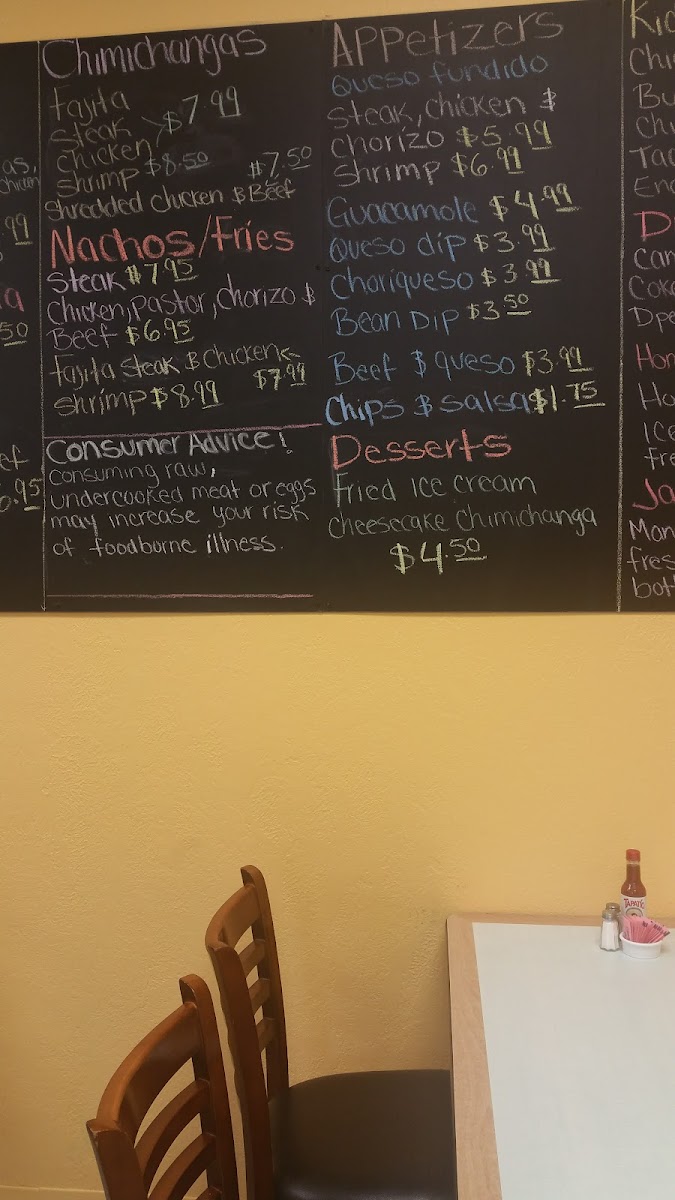 as,
chicken
.99
a
50
ef
6.95
Chimichangas
Fajita
Steak $7.99
Chicken
Shrimp $8.50 $7.50
Shredded chicken & Beef
Nachos/Fries
Steak $7.95
Chicken, Pastor, Chorizo &
Beef $6.95
Fajita Steak & Chicken
Shrimp $8.99 $7.99
Consumer Advice!
Consuming raw,
undercooked meat or eggs
may increase your risk
of foodborne illness.
Appetizers
Queso fundido
Steak, chicken &
chorizo $5.99
shrimp $6.99
Guacamole $4.99
Queso dip $3.99
Choriqueso $3.99
Bean Dip $3.50
Beef & queso $3.99
Chips & salsa $1.75
Desserts
Fried Ice cream
cheesecake chimichanga
$4.50
Ki
Chi
Bu
Chi
Ta
En
D
Can
Coke
Dpe
Hor
Ho
Ice
fre
Ja
Mon
fres
bott
TAPATIO